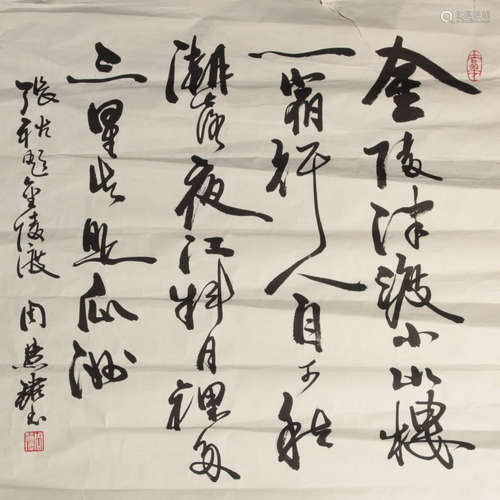 金陵津渡小山樓
一宿行人自可愁
潮落夜江斜月裡兩
三星火是瓜洲
張祜題金陵渡 周慧珺書